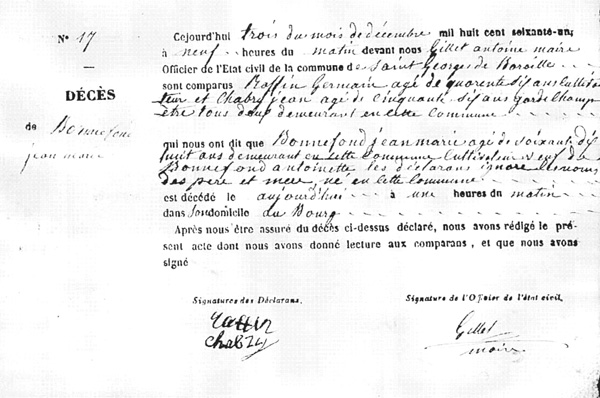 N° 17
DÉCÈS
de Bonnefond
jean marie
Cejourd'hui trois du mois de décembre mil huit cent soixante-un,
à neuf heures du matin devant nous Gillet antoine maire
Officier de l'Etat civil de la commune de Saint Georges de Baroille
sont comparus Raffin Germain agé de quarente sis ans Cultiva
teur et Chabry jean agé de Cinquante sis ans Garde Champ
être tous deux demeurant en cette Commune
qui nous ont dit que Bonnefond jean marie agé de soixante dis
huit ans demeurant en cette Commune Cultivateur veuf de
Bonnefond antoinette les déclarans ignore les noms
des père et mère né en cette Commune
est décédé le aujourd'hui à une heures du matin
dans son domicile du Bourg
Après nous être assuré du décès ci-dessus déclaré, nous avons rédigé le pré-
sent acte dont nous avons donné lecture aux comparans, et que nous avons
signé
Signatures des Déclarans. Signature de l'Officier de l'état civil.
Raffin Gillet
chabry maire